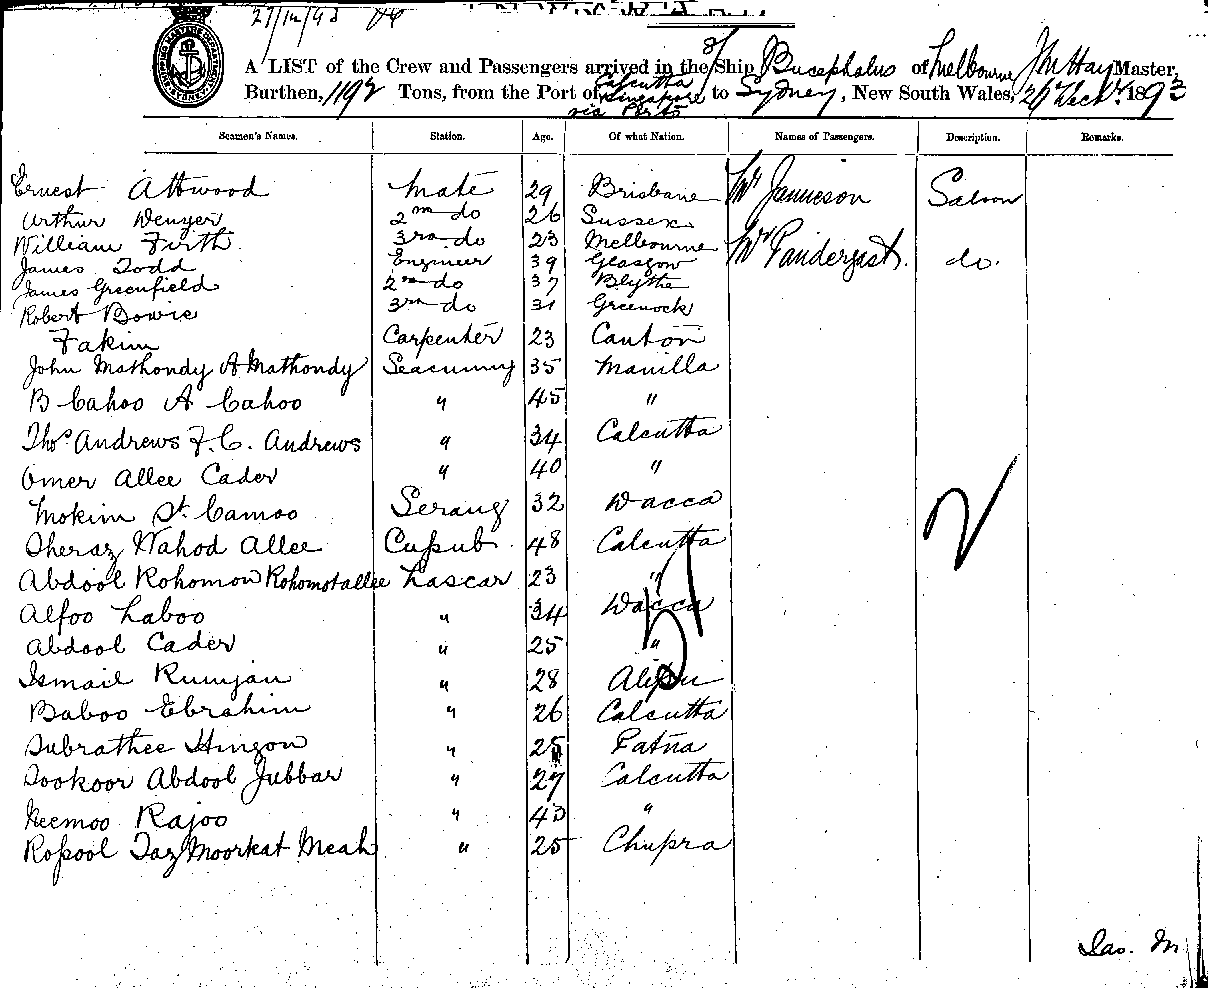 27/12/93
A LIST of the Crew and Passengers arrived in the S/Ship Bucephalus of Melbourne J M Hay Master,
Burthen, 1192 Tons, from the Port of Calcutta Singapore via Ports to Sydney, New South Wales, 27 Decbr. 1893
Seamen's Names. Station. Age. Of what Nation. Names of Passengers. Description. Remarks.
Ernest Attwood Mate 29 Brisbane Mr Jamieson Saloon
Arthur Wenyer 2nd do 26 Sussex
William Firth 3rd do 23 Melbourne Mr Pandergast. do.
James Todd Engineer 39 Glasgow
James Greenfield 2nd do 37 Blythe
Robert Bowie 3rd do 31 Greenock
Fakim Carpenter 23 Canton
John Mathondy A Mathondy Seacunny 35 Manilla
B Cahoo A Cahoo " 45 "
Thos. Andrews F. C. Andrews " 34 Calcutta
Omer Allee Cader " 40 "
Mokim St. Camoo Serang 32 Dacca
Sheraz Wahod Allee Cussub. 48 Calcutta
Abdool Rohomon Rohomotallee Lascar 23 "
Alfoo Laboo " 34 Dacca
Abdool Cader " 25 "
Ismail Rumjan " 28
Baboo Ebrahim " 26 Calcutta
Subrathee Hingon " 25 Patna
Tookoor Abdool Jubbar " 27 Calcutta
Keemoo Rajoo " 43 "
Rossool Taz Moorkat Meah " 25 Chupra
2
51
Jas. M